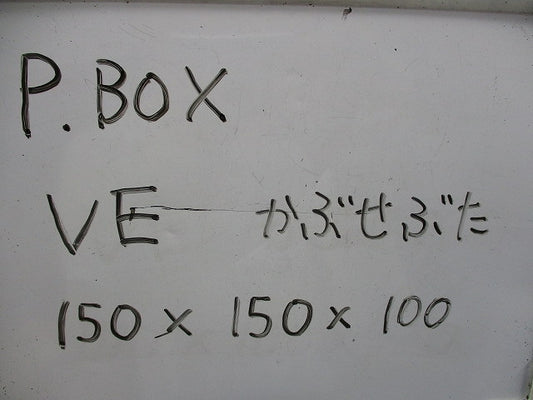 P.BOX
VE かぶせぶた
150 x 150 x 100